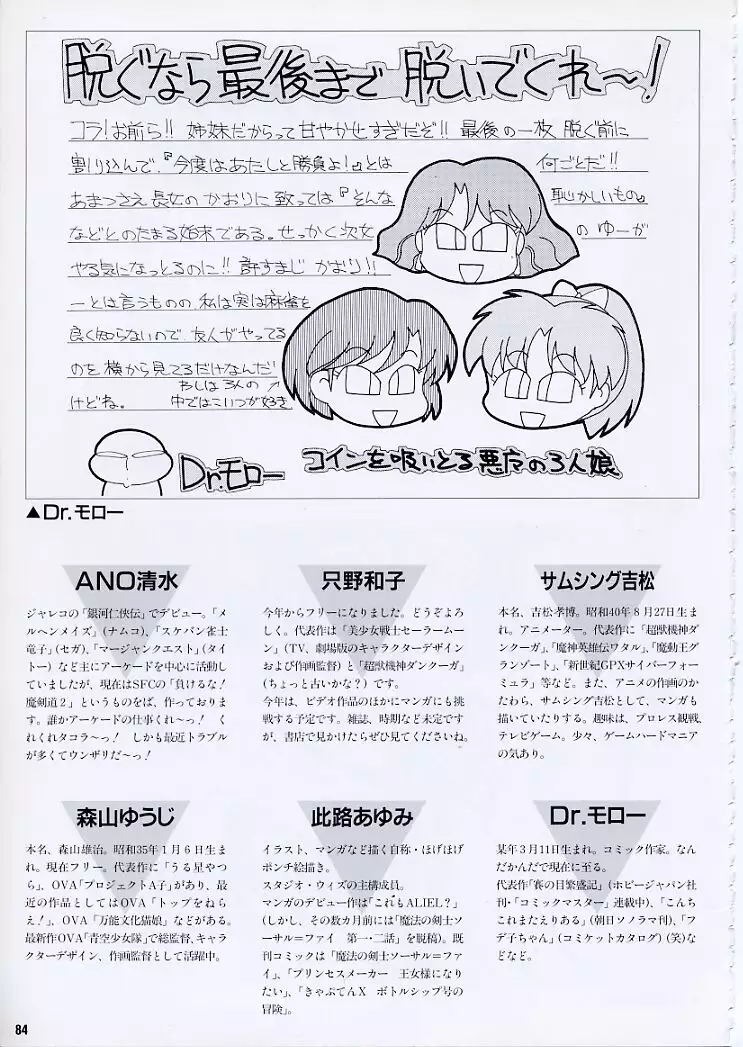 脱ぐなら最後まで 脱いでくれ〜!
コラ!お前ら!! 姉妹だからって甘やかせすぎだぞ!! 最後の一枚 脱ぐ前に
割り込んで、『今度はあたしと勝負よ!』とは 何ごとだ!!
あまつさえ長女の かおりに致っては『そんな 恥かしいもの』
などとのたまる始末である。せっかく次女 のゆーが
やる気になっとるのに!! 許すまじ かおり!!
ーとは言うものの 私は実は麻雀を
良く知らないので、友人がやってる
のを横から見てるだけなんだ
けどね。
わしは3人の
中ではこいつが好き
↗
Dr.モロー
コインを吸いとる悪魔の3人娘
▲Dr.モロー
ANO清水
ジャレコの「銀河仁侠伝」でデビュー。「メ
ルヘンメイズ」(ナムコ)、「スケバン雀士
竜子」(セガ)、「マージャンクエスト」(タイ
トー)など主にアーケードを中心に活動し
ていましたが、現在はSFCの「負けるな!
魔剣道2」というものをば、作っておりま
す。誰かアーケードの仕事くれ〜っ! く
れくれタコラ〜っ! しかも最近トラブル
が多くてウンザリだ〜っ!
只野和子
今年からフリーになりました。どうぞよろ
しく。代表作は「美少女戦士セーラームー
ン」(TV、劇場版のキャラクターデザイン
および作画監督)と「超獣機神ダンクーガ」
(ちょっと古いかな?)です。
今年は、ビデオ作品のほかにマンガにも挑
戦する予定です。雑誌、時期など未定です
が、書店で見かけたらぜひ見てくださいね。
サムシング吉松
本名、吉松孝博。昭和40年8月27日生ま
れ。アニメーター。代表作に「超獣機神ダ
ンクーガ」、「魔神英雄伝ワタル」、「魔動王グ
ランゾート」、「新世紀GPXサイバーフォー
ミュラ」等など。また、アニメの作画のか
たわら、サムシング吉松として、マンガも
描いていたりする。趣味は、プロレス観戦、
テレビゲーム。少々、ゲームハードマニア
の気あり。
森山ゆうじ
本名、森山雄治。昭和35年1月6日生ま
れ。現在フリー。代表作に「うる星やつ
ら」、OVA「プロジェクトA子」があり、最
近の作品としてはOVA「トップをねら
え!」、OVA「万能文化猫娘」などがある。
最新作OVA「青空少女隊」で総監督、キャラ
クターデザイン、作画監督として活躍中。
此路あゆみ
イラスト、マンガなど描く自称・ほげほげ
ポンチ絵描き。
スタジオ・ウィズの主構成員。
マンガのデビュー作は「これもALIEL?」
(しかし、その数カ月前には「魔法の剣士ソ
ーサル=ファイ 第一・二話」を脱稿)。既
刊コミックは「魔法の剣士ソーサル=ファ
イ」、「プリンセスメーカー 王女様になり
たい」、「きゃぷてんX ボトルシップ号の
冒険」。
Dr.モロー
某年3月11日生まれ。コミック作家。なん
だかんだで現在に至る。
代表作「賽の目繁盛記」(ホビージャパン社
刊・「コミックマスター」連載中)、「こんち
これまたえりある」(朝日ソノラマ刊)、「フ
デ子ちゃん」(コミケットカタログ)(笑)な
どなど。
84